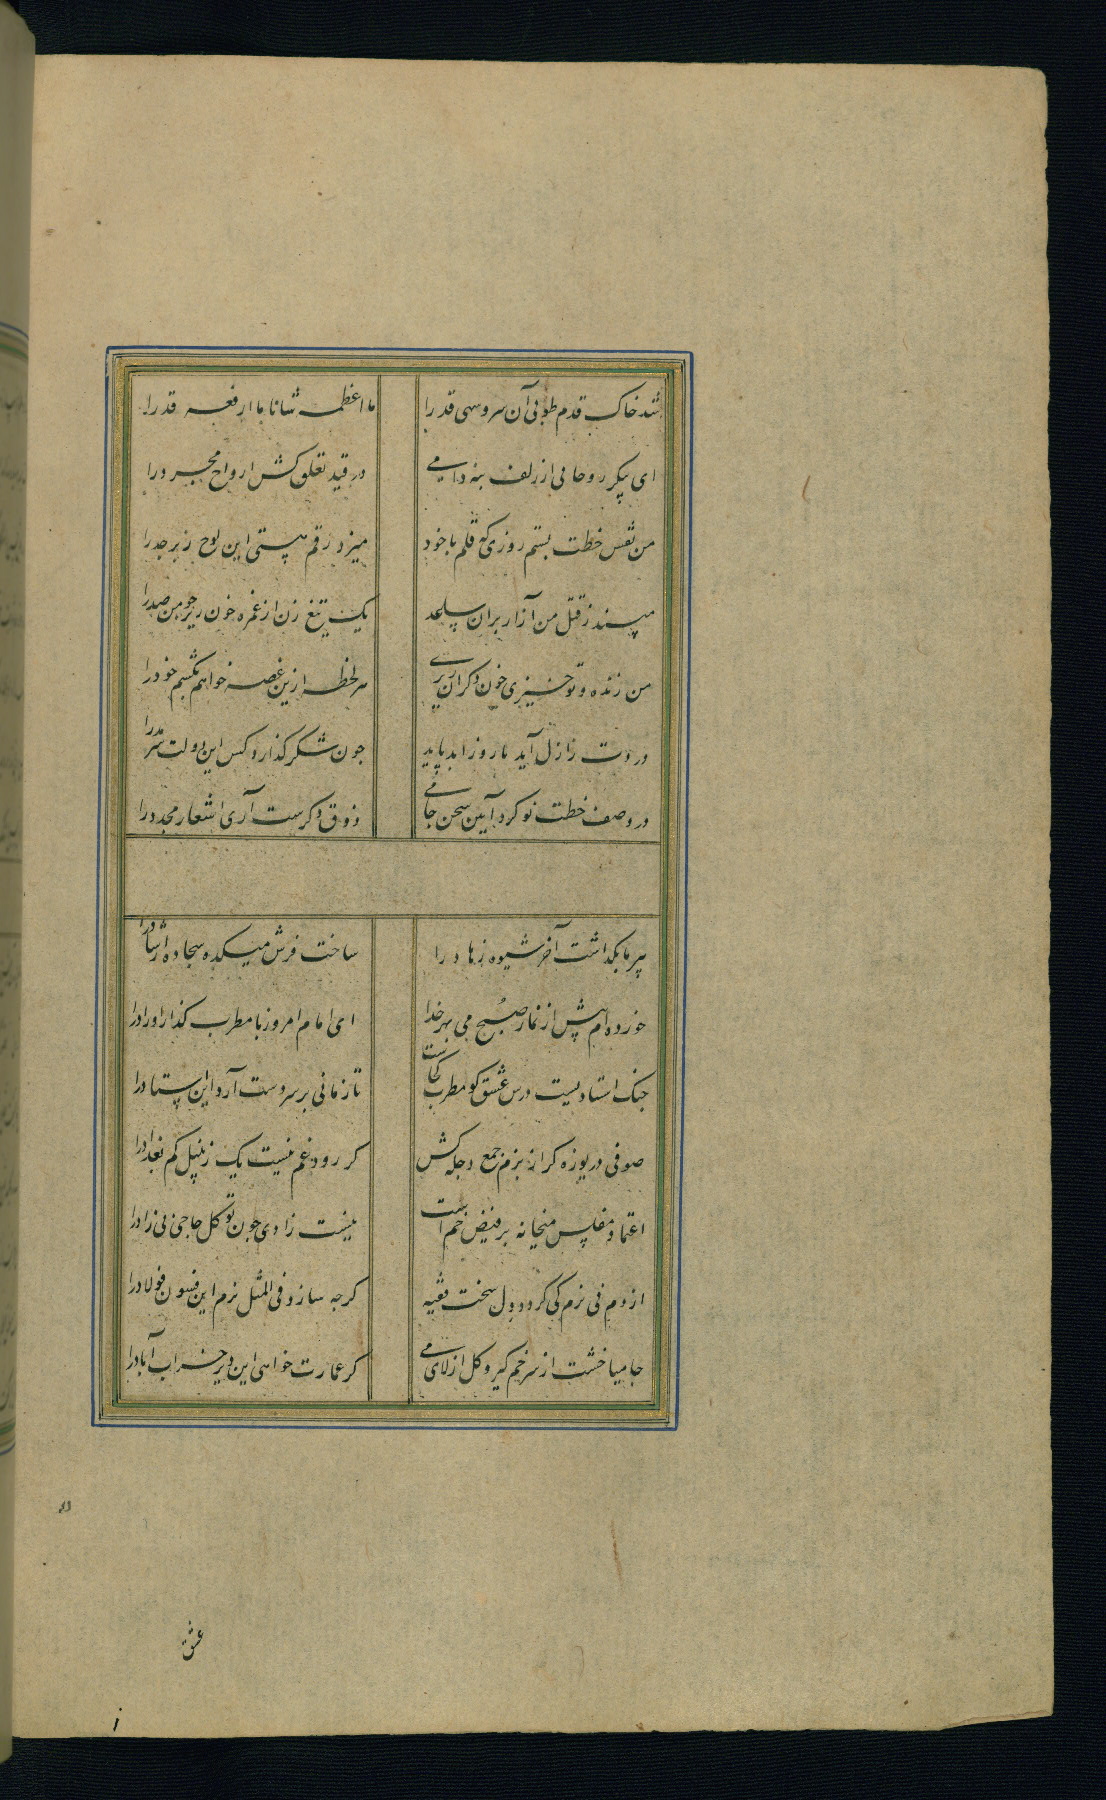 شد خاک قدم طوبی آن سرو سهی قد را
ما اعظمه شانا ما ارفعه قدرا
ای پیکر روحانی از زلف بنه دامی
در قید تعلق کش ارواح مجرد را
من نقش خطت بستم روزی که قلم با خود
میزد رقم هستی این لوح زبرجد را
مپسند ز قتل من آزار بران ساعد
یک تیغ زن از غمزه خون ریز جو من صد را
من زنده و تو خیزی خون دکران ریزی
هر لحظه ازین غصه خواهم بکشم خود را
دردت ز ازل آید تا روز ابد پاید
جون شکر کذارد کس این دولت سرمد را
در وصف خطت نو کرد آیین سخن جامی
ذوق دکرست آری اشعار مجدد را
پیر ما بکذاشت آخر شیوه زهاد را
ساخت فرش میکده سجاده ارشاد را
خورده ام پیش از نماز صبح می بهر خدا
ای امام امروز با مطرب کذار اوراد را
جنک استادیست درس عشق کو مطرب کجاست
تا زمانی بر سر دست آرد این استاد را
صوفی دریوزه کر از بزم جمع دجله کش
کر رود غم نیست یک زنبیل کم بغداد را
اعتماد مفلس میخانه بر فیض خم است
نیست زادی جون توکل حاجی بی زاد را
از دم نی نرم کی کردد دل سخت فقیه
کرجه سازد فی المثل نرم این فسون فولاد را
جامیا خشت از سر خم کیر و کل از لای می
کر عمارت خواهی این دیر خراب آباد را
عشق